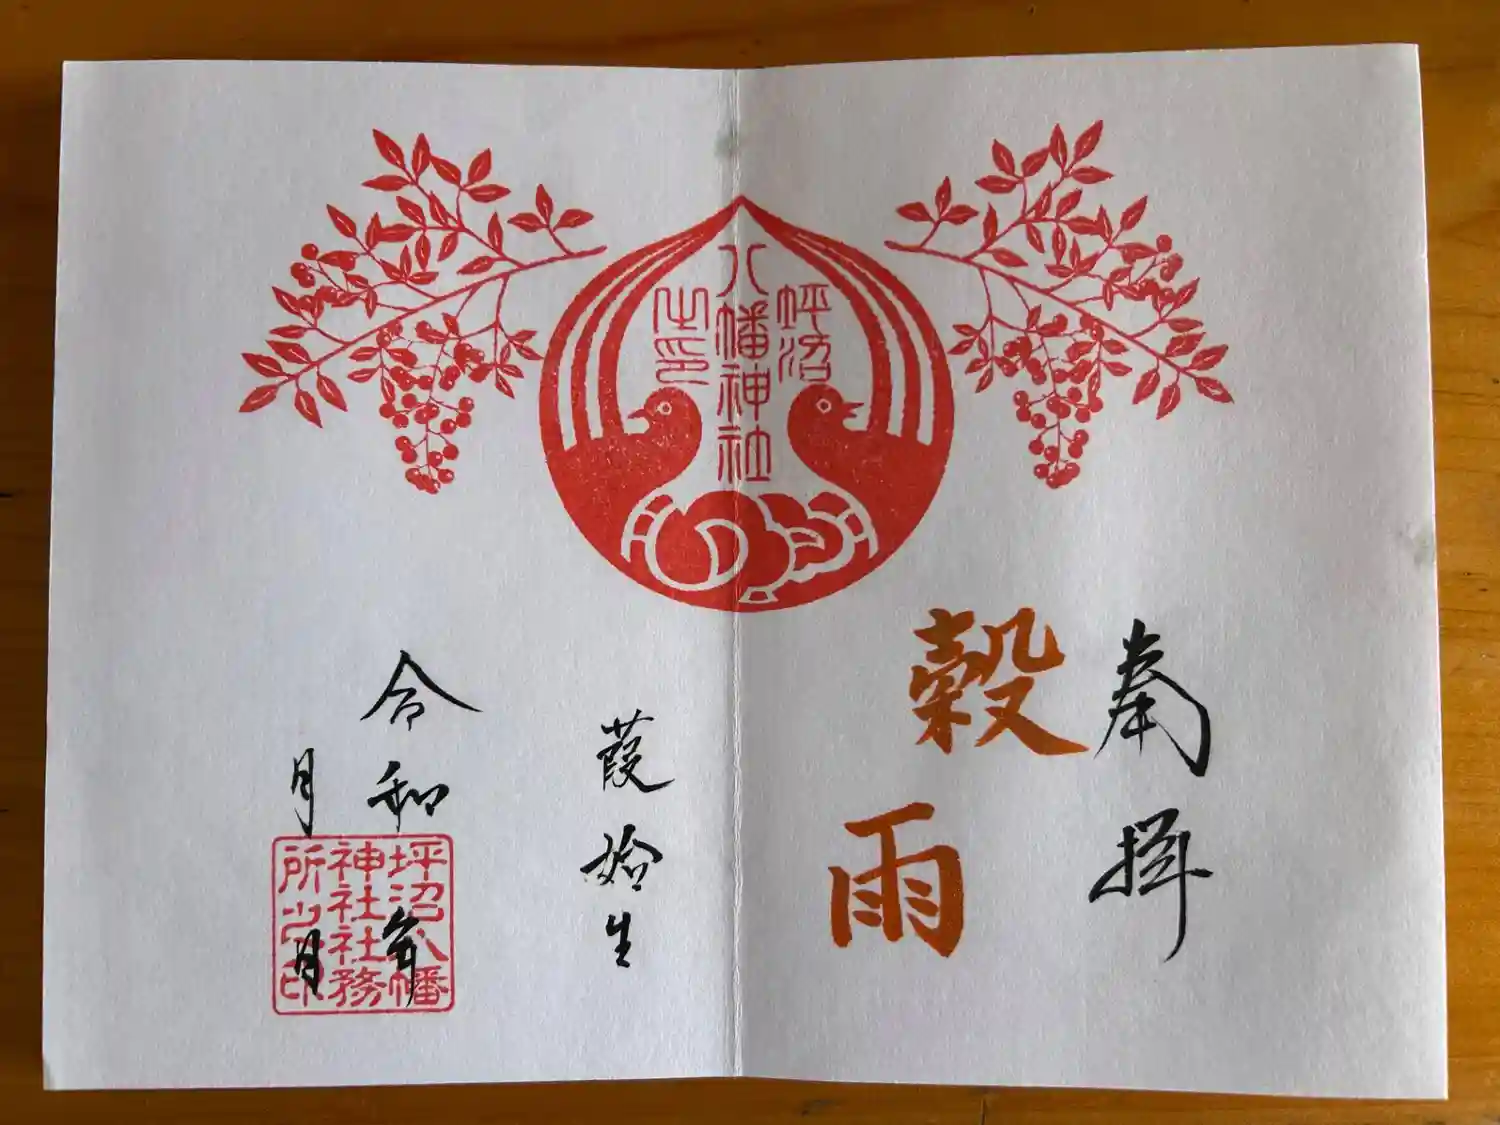 坪沼
八幡神社
之印
奉拝
穀雨
葭始生
令和年
月日
坪沼八幡
神社社務
所之印